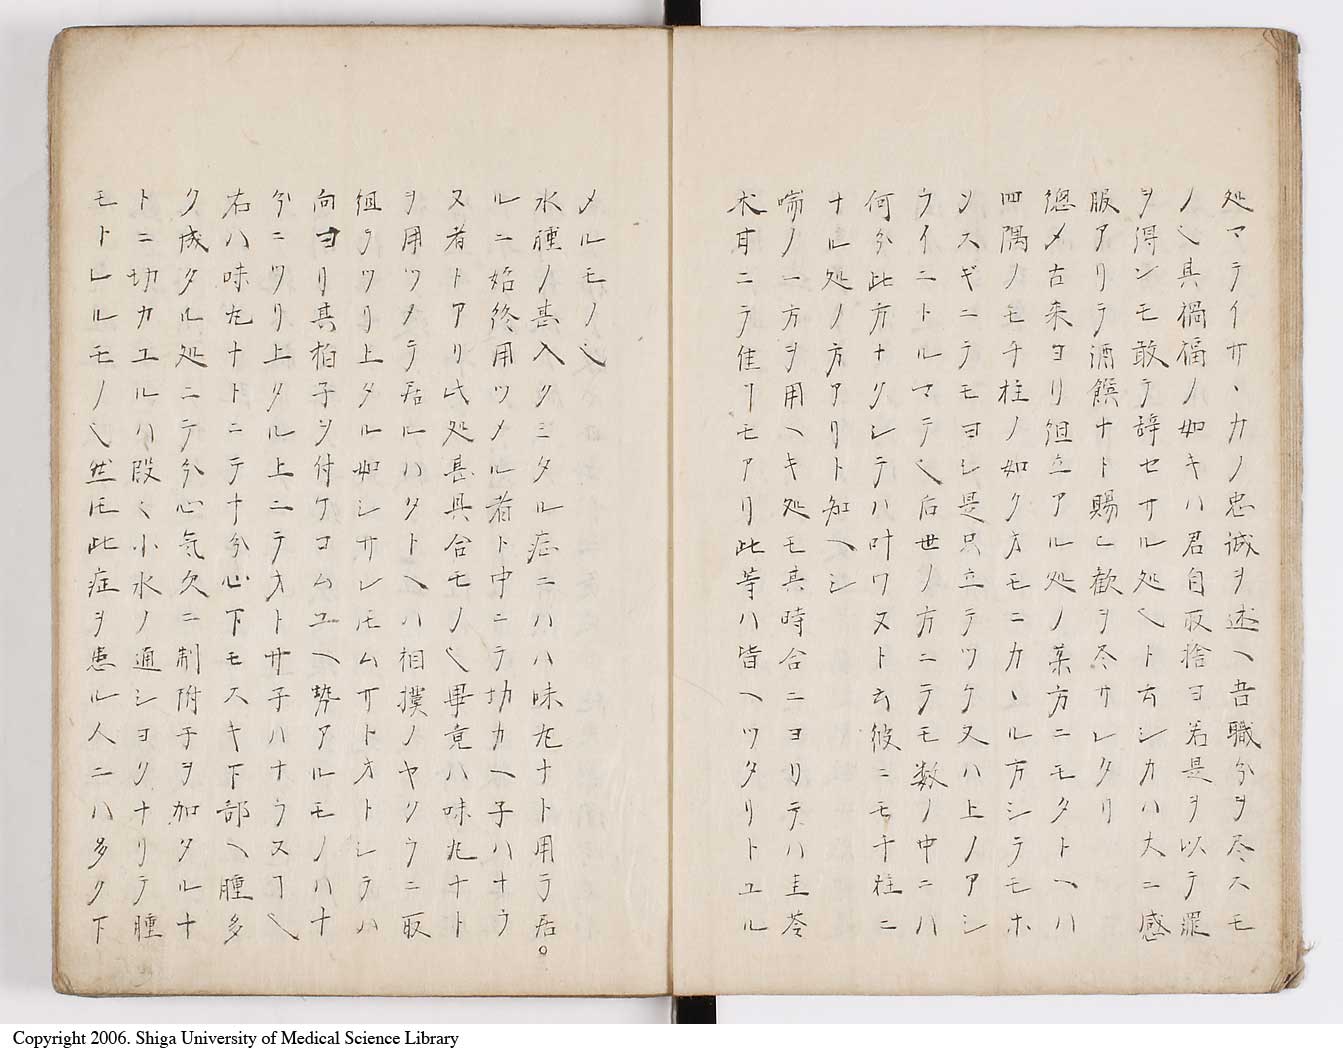 処マテイサヽカノ忠誠ヲ述ヘ吾職分ヲ尽スモ
ノ乄其禍福ノ如キハ君自取捨ヨ若是ヲ以テ罪
ヲ得ンモ敢テ辞セサル処乄ト云シカハ大ニ感
服アリテ酒饌ナト賜ヒ歓ヲ尽サレタリ
総メ古来ヨリ組立アル処ノ薬方ニモタトヘハ
四隅ノモチ柱ノ如クオモニカヽル方シテモホ
シスギニテモヨシ是只立テツク又ハ上ノアシ
ライニトルマテ乄后世ノ方ニテモ数ノ中ニハ
何分此方ナクシテハ叶ワヌト云彼ニモチ柱ニ
ナル処ノ方アリト知ヘシ
喘ノ一方ヲ用ヘキ処モ其時合ニヨリテハ圭苓
朮甘ニテ佳リモアリ此等ハ皆ヘツタリトユル
メルモノ乄
水腫ノ甚入クミタル症ニハハ味丸ナト用テ居。
ルニ始終用ツメル者ト中ニテ切カヘ子ハナラ
ヌ者トアリ此処甚具合モノ乄畢竟ハ味丸ナト
ヲ用ツメテ居ルハタトヘハ相撲ノヤクラニ取
組テツリ上タル如シサレ𪜈ムサトオトシテハ
向ヨリ其拍子ヲ付ケコムユヘ勢アルモノハ十
分ニツリ上タル上ニテオトサ子ハナラヌヿ乄
右ハ味丸ナトニテ十分心下モスキ下部ヘ腫多
ク成タル処ニテ分心気欠ニ制附子ヲ加タルナ
トニ切カエルハ段〻小水ノ通シヨクナリテ腫
モトレルモノ乄然𪜈此症ヲ患ル人ニハ多ク下
Copyright 2006. Shiga University of Medical Science Library